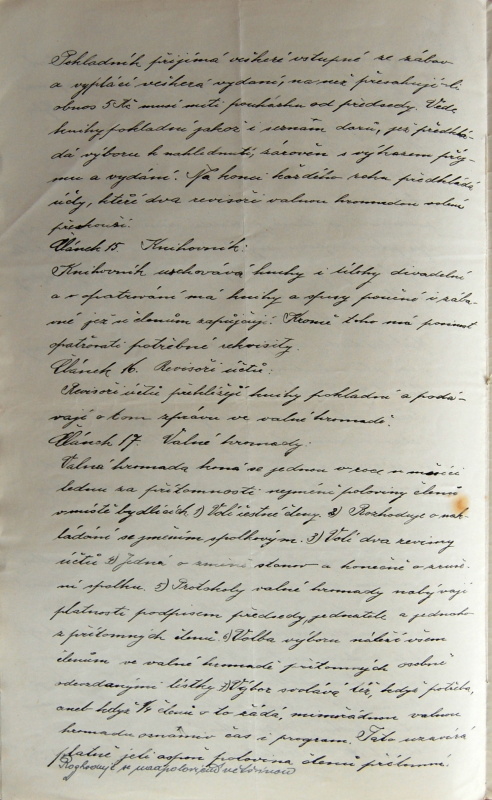 Pokladník přijímá veškeré vstupné ze zábav
a vyplácí veškerá vydaní, na než přesahuje-li
obnos 5 Kč musí míti poukázku od předsedy. Vede
knihy pokladní jakož i seznam darů, jež předklá-
dá výboru k nahlednutí, zárověn s výkazem příj-
mu a vydání. Na konci každého roku předkládá
účty, které dva revisoři valnou hromadou volné
přezkouší.
Článek 15. Knihovník:
Knihovník uschovává knihy i úlohy divadelní
a v opatrování má knihy a spisy poučné i zába-
vné jež členům zapůjčují. Kromě toho má povinnost
opatřovati potřebné rekvisity.
Článek 16. Revisoři účtů:
Revisoři účtů přehlížejí knihy pokladní a podá-
vají o tom zprávu ve valné hromadě.
Článek 17. Valné hromady:
Valná hromada koná se jednou v roce v měsíci
lednu za přítomnosti nejméně poloviny členů
v místě bydlících. 1) Volí čestné členy. 2) Rozhoduje o nak-
ládání se jměním spolkovým. 3) Volí dva revisory
účtů 4) Jedná o změně stanov a konečně o zruše-
ní spolku. 5) Protokoly valné hromady nabývají
platnosti podpisem předsedy, jednatele a jednoho
z přítomných členů 6) Volba výboru náleží všem
členům ve valné hromadě přítomných osobně
odevzdanými lístky 7) Výbor svolává též, když potřeba,
aneb když 1/4 členů o to žádá, mimořádnou valnou
hromadu oznámiv čas i program. Tato uzavírá
platně jeli aspoň polovina členů přítomna.
Rozhoduje se nadpoloviční většinou